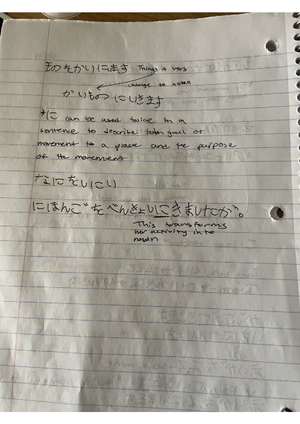 ものをかいにきます Things + verb
change to noun
かいもの にいきます
*に can be used twice in a
sentence to describe both goal of
movement to a place and the purpose
of the movement
なにをしにい
にほんごをべんきょしにきましたか。
This transforms
activity into
noun